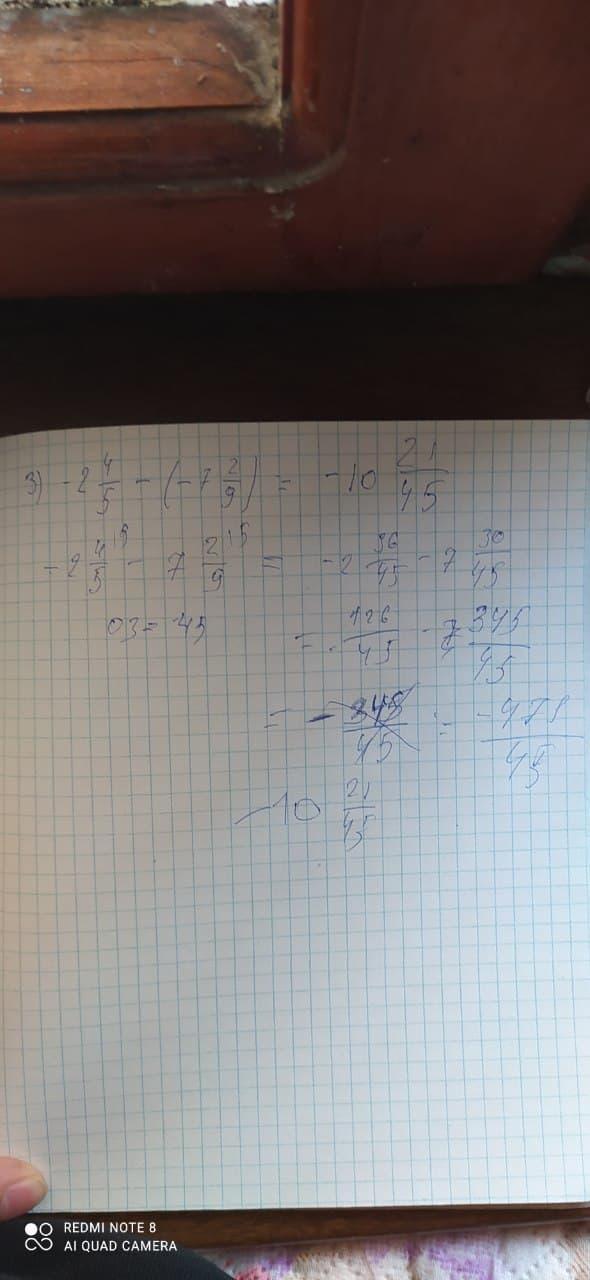 3) -2 4/5 - (-7 2/9) = -10 21/45
-2 4/5 - 7 2/9 = -2 36/45 - 7 30/45
03 = 45 = - 126/45 - 345/45
= = -471/45
-10 21/45
REDMI NOTE 8
AI QUAD CAMERA